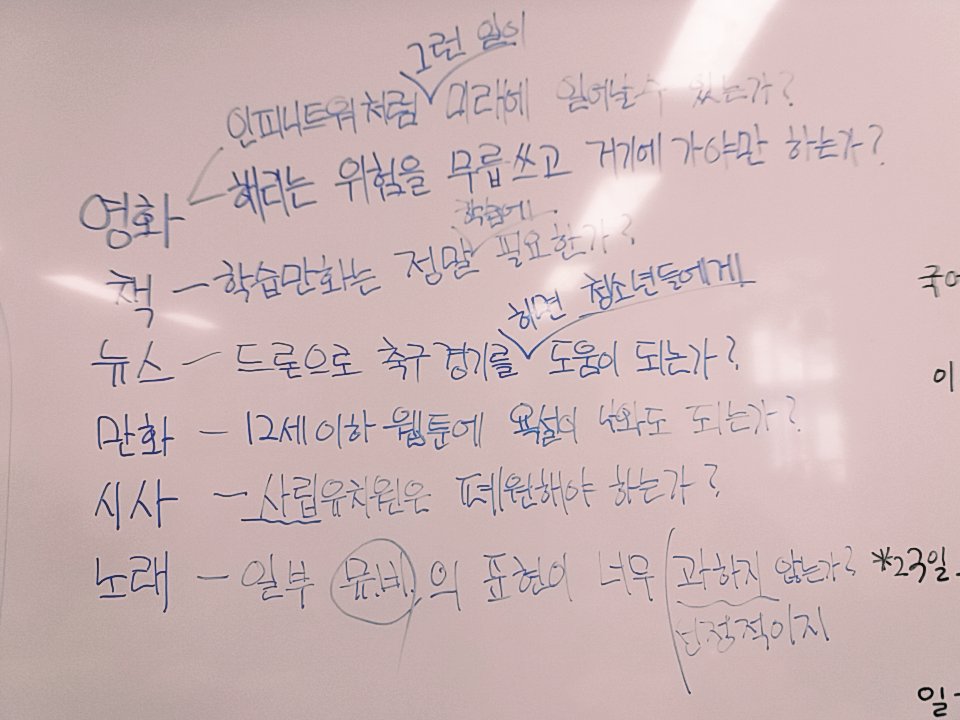 그런 일이
인피니트워처럼 미래에 일어날 수 있는가?
영화 - 헤라는 위험을 무릅쓰고 거기에 가야만 하는가?
학습에
책 - 학습만화는 정말 필요한가?
하면 청소년들에게
뉴스 - 드론으로 축구경기를 도움이 되는가?
만화 - 12세이하 웹툰에 욕설이 나와도 되는가?
시사 - 사립유치원은 폐원해야 하는가?
노래 - 일부 뮤.비.의 표현이 너무 과하지 않는가?
단정적이지
국어
이
*23일
일